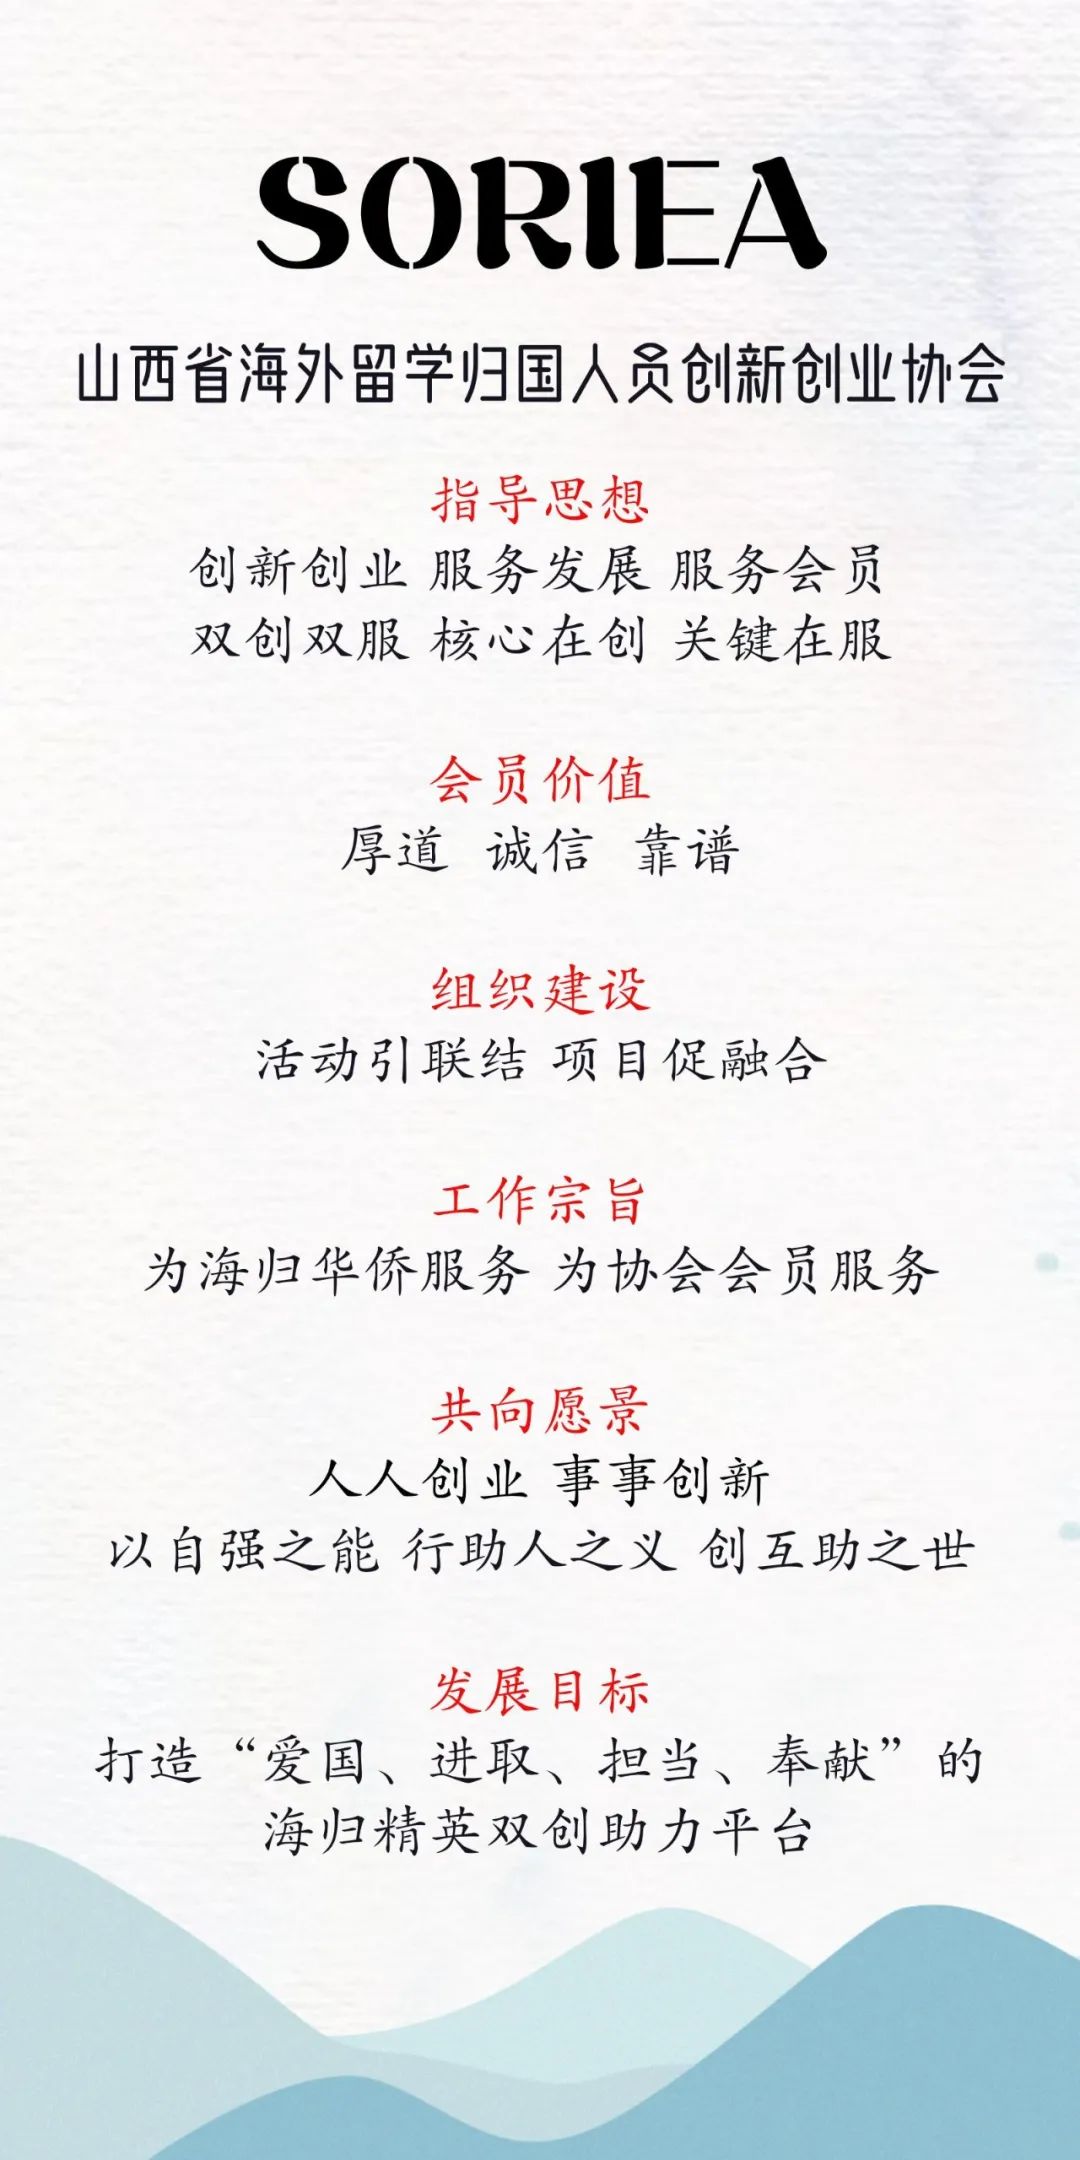 SORIEA
山西省海外留学归国人员创新创业协会
指导思想
创新创业 服务发展 服务会员
双创双服 核心在创 关键在服
会员价值
厚道 诚信 靠谱
组织建设
活动引联结 项目促融合
工作宗旨
为海归华侨服务 为协会会员服务
共向愿景
人人创业 事事创新
以自强之能 行助人之义 创互助之世
发展目标
打造“爱国、进取、担当、奉献”的
海归精英双创助力平台